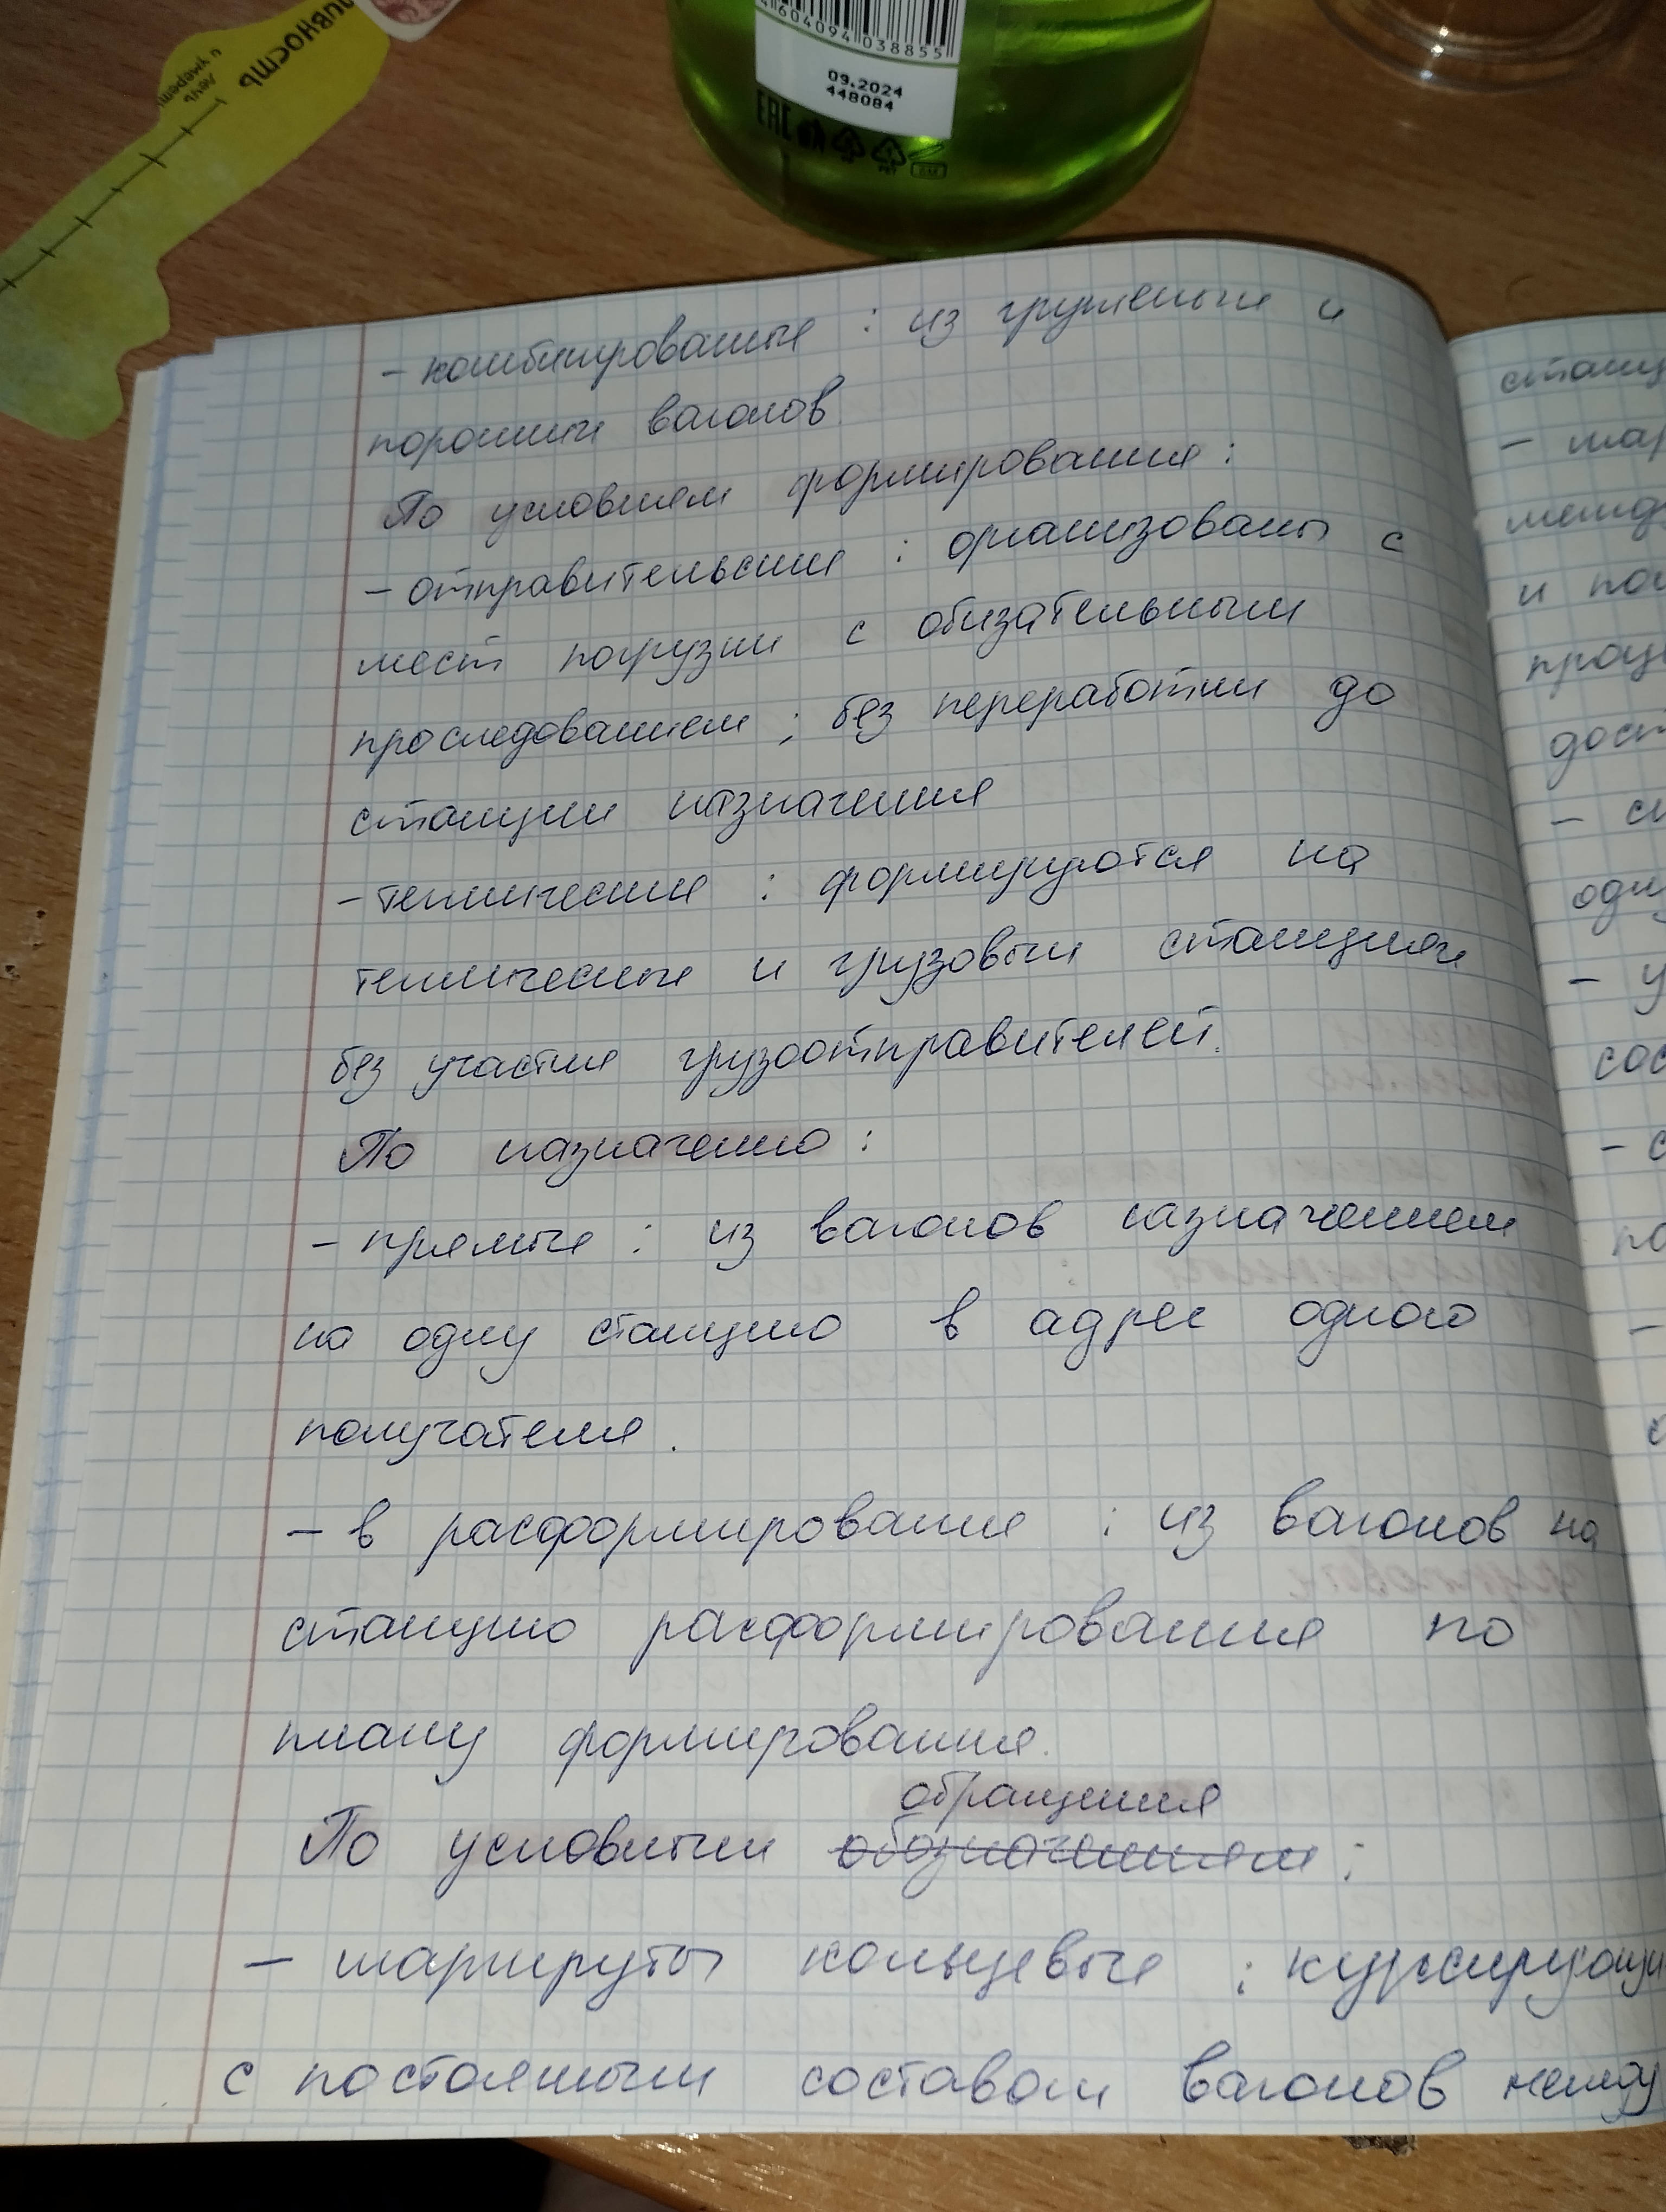 ивность
лень
и умереть
4604094038855
09.2024
448084
EAC
- комбинированные : из груженых и
порожних вагонов
По условиям формирования :
- отправительские : организованы с
мест погрузки с обязательным
проследованием ; без переработки до
станции назначения
- технические : формируются на
технических и грузовых станциях
без участия грузоотправителей.
По назначению :
- прямые : из вагонов назначением
на одну станцию в адрес одного
получателя .
- в расформирование : из вагонов на
станцию расформирования по
плану формирования.
обращения
По условным обозначениям :
- маршруты кольцевые : курсирующи
с постоянным составом вагонов между
станц
- мар
между
и по
проц
дост
- с
одну
- у
сос
- с
по
-